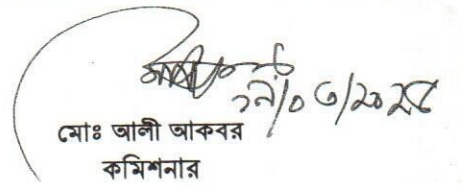 ১৯/০৩/২০২৫
মোঃ আলী আকবর
কমিশনার